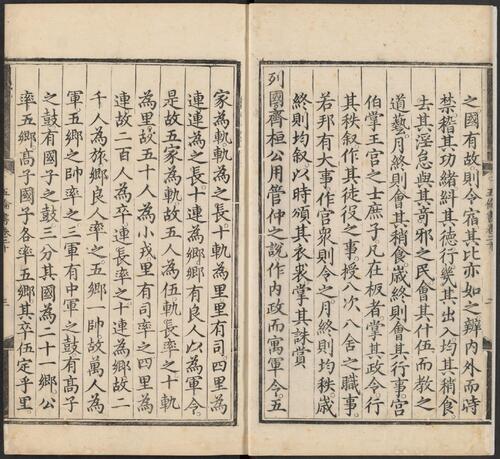 之國有故則令宿其比亦如之辯內外而時
禁稽其功緒糾其德行幾其出入均其稍食
去其淫怠與其奇邪之民會其什伍而教之
道藝月終則會其稍食歲終則會其行事宮
伯掌王宮之士庶子凡在板者掌其政令行
其秩叙作其徒役之事授八次八舍之職事
若邦有大事作宮眾則令之月終則均秩歲
終則均叙以時頒其衣裘掌其誅賞
列國齊桓公用管仲之說作內政而寓軍令五
家為軌軌為之長十軌為里里有司四里為
連連為之長十連為鄉鄉有良人以為軍令
是故五家為軌故五人為伍軌長率之十軌
為里故五十人為小戎里有司率之四里為
連故二百人為卒連長率之十連為鄉故二
千人為旅鄉良人率之五鄉一帥故萬人為
軍五鄉之帥率之三軍有中軍之鼓有高子
之鼓有國子之鼓三分其國為二十一鄉公
率五鄉高子國子各率五鄉其卒伍定乎里